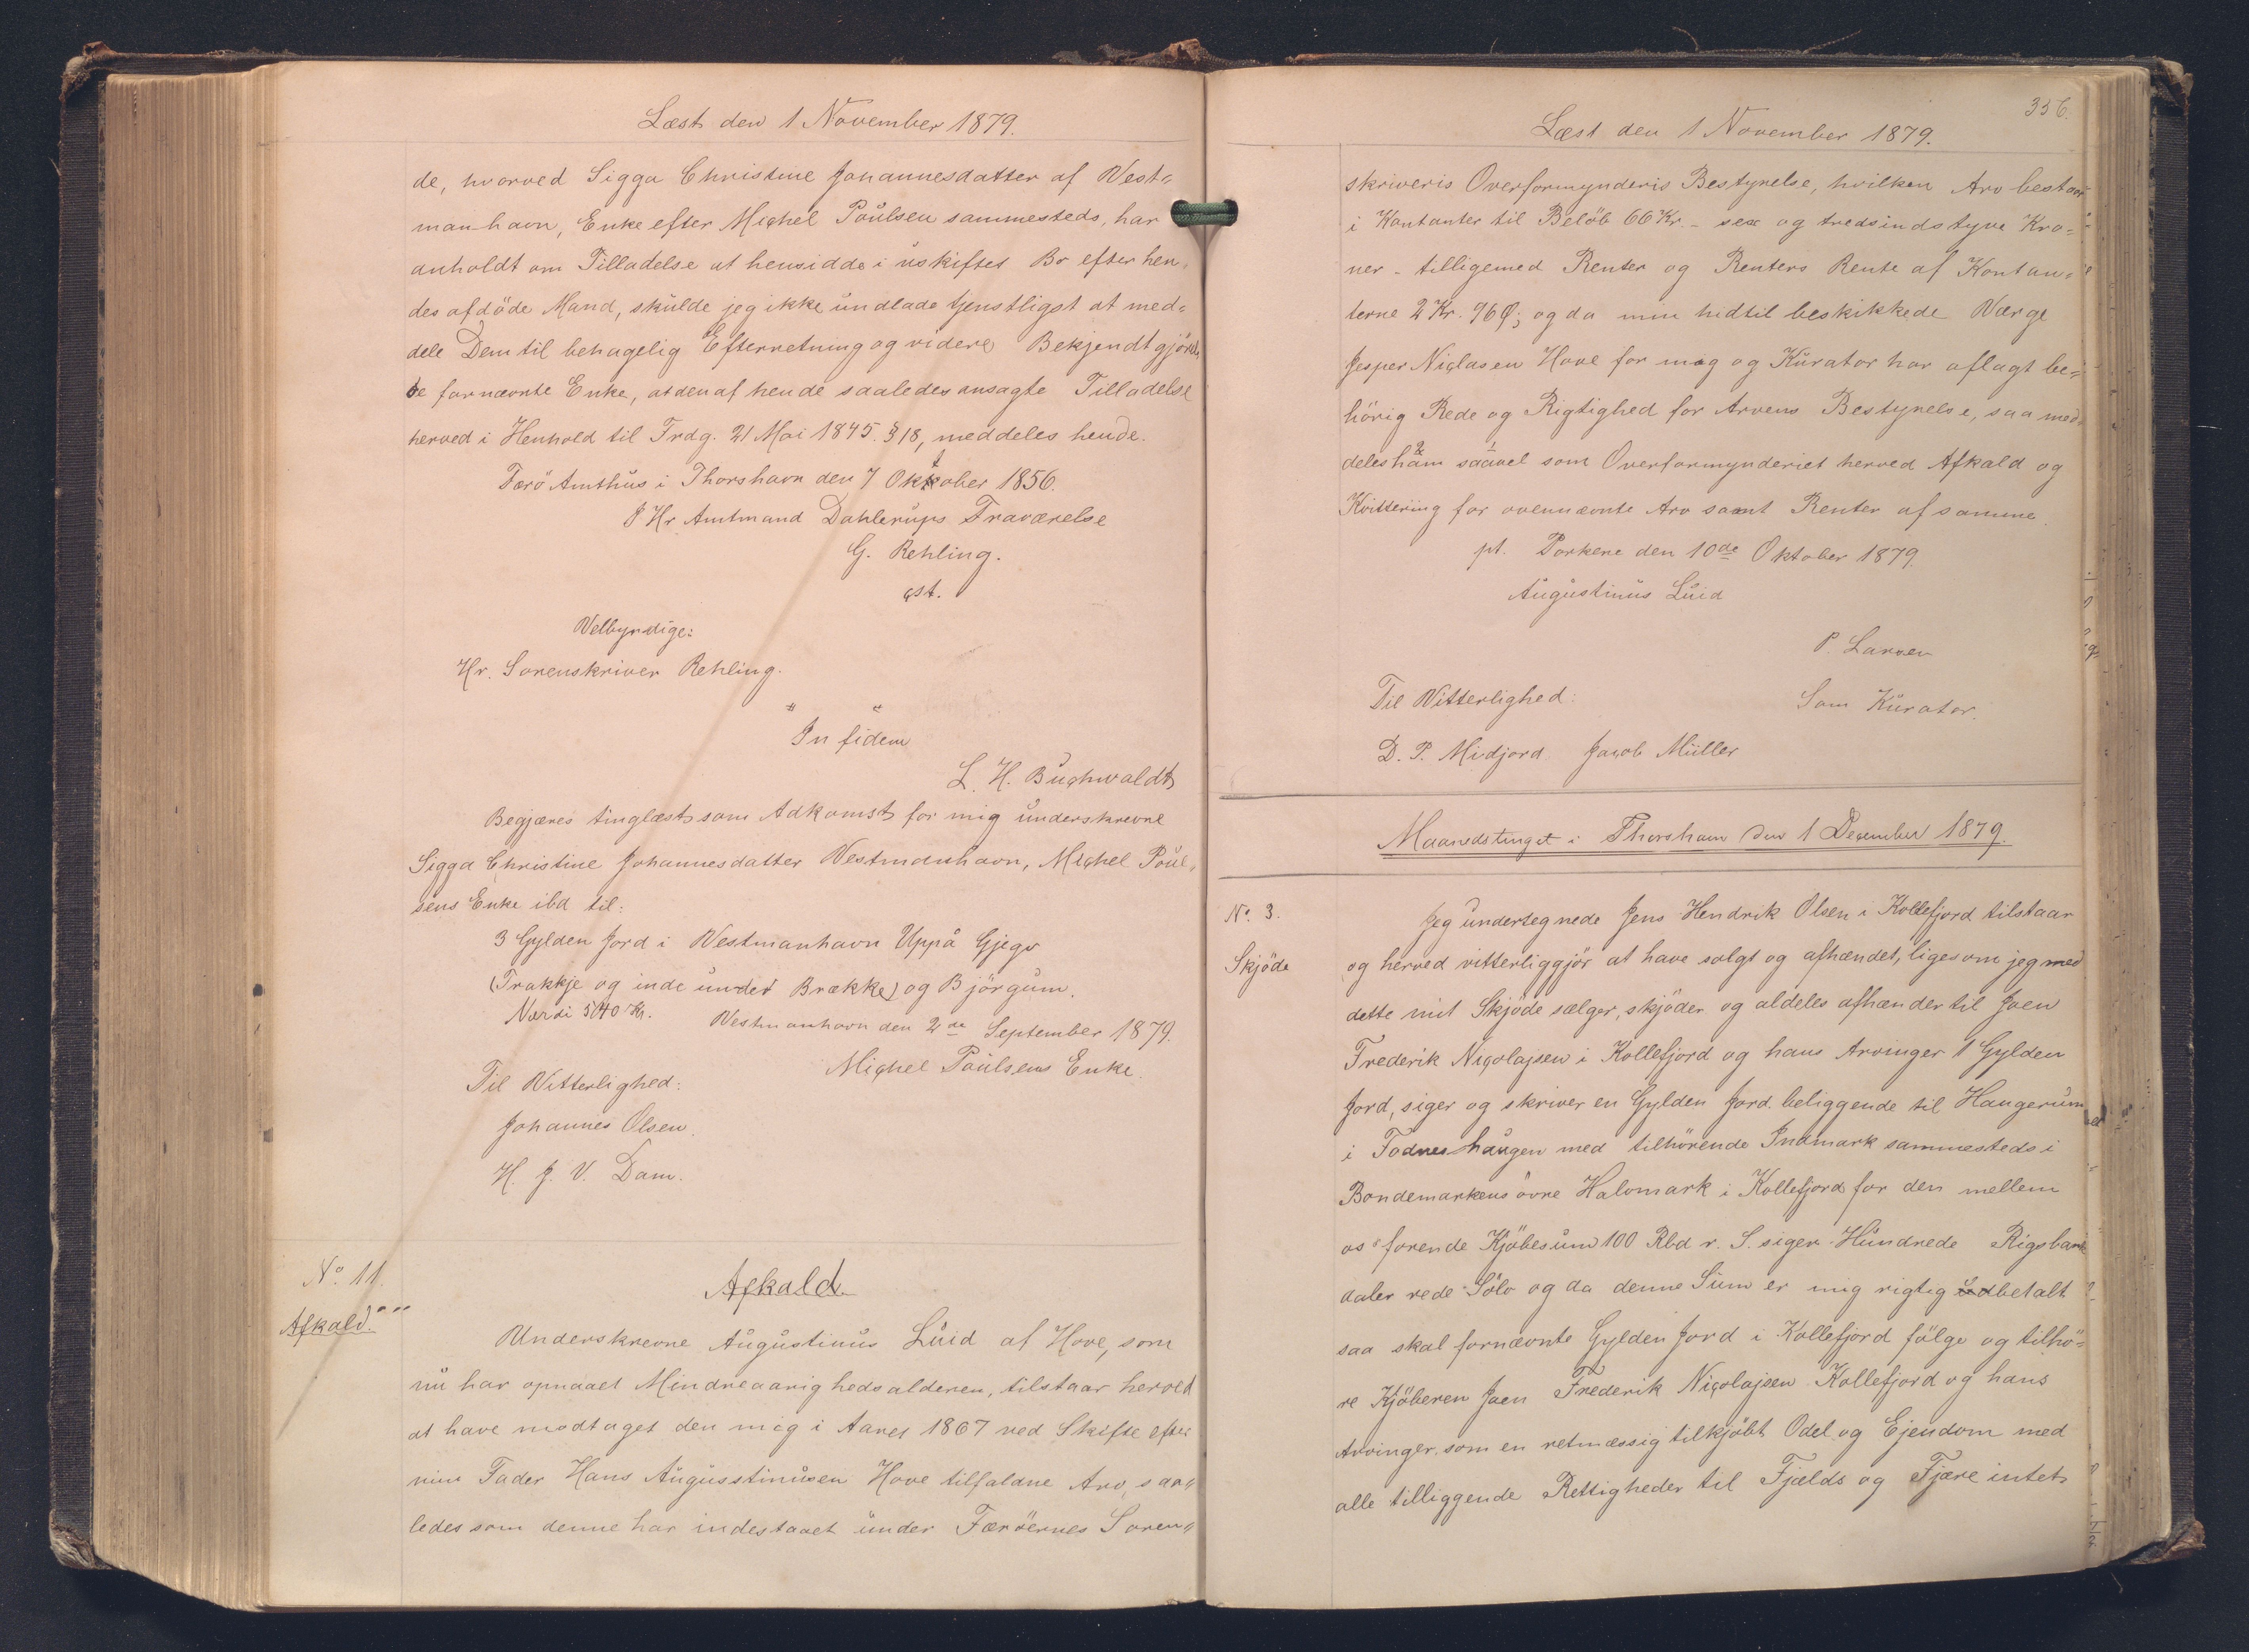 Læst den 1 November 1879.
de, hvorved Sigga Christine Johannesdatter af Vest=
manhavn, Enke efter Michel Poulsen sammesteds, har
anholdt om Tilladelse at hensidde i uskiftet Bo efter hen=
des afdöde Mand, skulde jeg ikke undlade tjenstligst at med=
dele Dem til behagelig Efterretning og videre Bekjendtgjörel
se fornævnte Enke, at den af hende saaledes ansøgte Tilladelse
herved i Henhold til Frdg. 21 Mai 1845. § 18, meddeles hende.
Færö Amthus i Thorshavn den 7 Oktober 1856.
I Hr Amtmand Dahlerups Fraværelse
G. Rehling.
cst.
Velbyrdige:
Hr. Sorenskriver Rehling.
In fidem
L. H. Buchwaldt
Begjæres tinglæst som Adkomst for mig underskrevne
Sigga Christine Johannesdatter Vestmanhavn, Michel Poul=
sens Enke ibd til:
3 Gylden Jord i Westmanhavn Uppá Gjegv
(Trakkje og inde under Brække) og Björgum.
Værdi 540 Kr.
Westmanhavn den 2de September 1879.
Michel Poulsens Enke.
Til Vitterlighed:
Johannes Olsen.
H. J. V. Dam.
No. 11.
Afkald.
Afkald
Underskrevne Augustinus Luid af Hove, som
nu har opnaaet Mindreaarighedsalderen, tilstaar herved
at have modtaget den mig i Aaret 1867 ved Skifte efter
min Fader Hans Augusstinusen Hove tilfaldne Arv, saa=
ledes som denne har indestaaet under Færöernes Soren=
356.
Læst den 1 November 1879.
skriveris Overformynderis Bestyrelse, hvilken Arv bestaar
i Kontanter til Belöb 66 Kr. - sex og tredsindstyve Kro=
ner - tilligemed Renter og Renters Rente af Kontan=
terne 2 Kr. 96 Ø; og da min hidtil beskikkede Værge
Jesper Niclasen Hove for mig og Kurator har aflagt be=
hörig Rede og Rigtighed for Arvens Bestyrelse, saa med=
deles ham saavel som Overformynderiet herved Afkald og
Kvittering for ovennævnte Arv samt Renter af samme.
pt. Porkere den 10de Oktober 1879.
Augustinus Luid
P. Larsen
Som Kurator.
Til Vitterlighed:
D. P. Midjord Jacob Müller
Maanedstinget i Thorshavn den 1 December 1879.
No. 3.
Skjöde
Jeg undertegnede Jens Hendrik Olsen i Kollefjord tilstaar
og herved vitterliggjör at have solgt og afhændet, ligesom jeg med
dette mit Skjöde sælger, skjöder og aldeles afhænder til Joen
Frederik Nicolajsen i Kollefjord og hans Arvinger 1 Gylden
Jord, siger og skriver en Gylden Jord. beliggende til Haugerum
i Todneshaugen med tilhörende Indmark sammesteds i
Bondemarkens övre Halvmark i Kollefjord for den mellem
os forende Kjöbesum 100 Rbd r. S. siger Hundrede Rigsbank
daler rede Sölv og da denne Sum er mig rigtig udbetalt
saa skal fornævnte Gylden Jord i Kollefjord fölge og tilhö=
re Kjöberen Joen Frederik Nicolajsen Kollefjord og hans
Arvinger, som en retmæssig tilkjöbt Odel og Ejendom med
alle tilliggende Rettigheder til Fjælds og Fjære intet